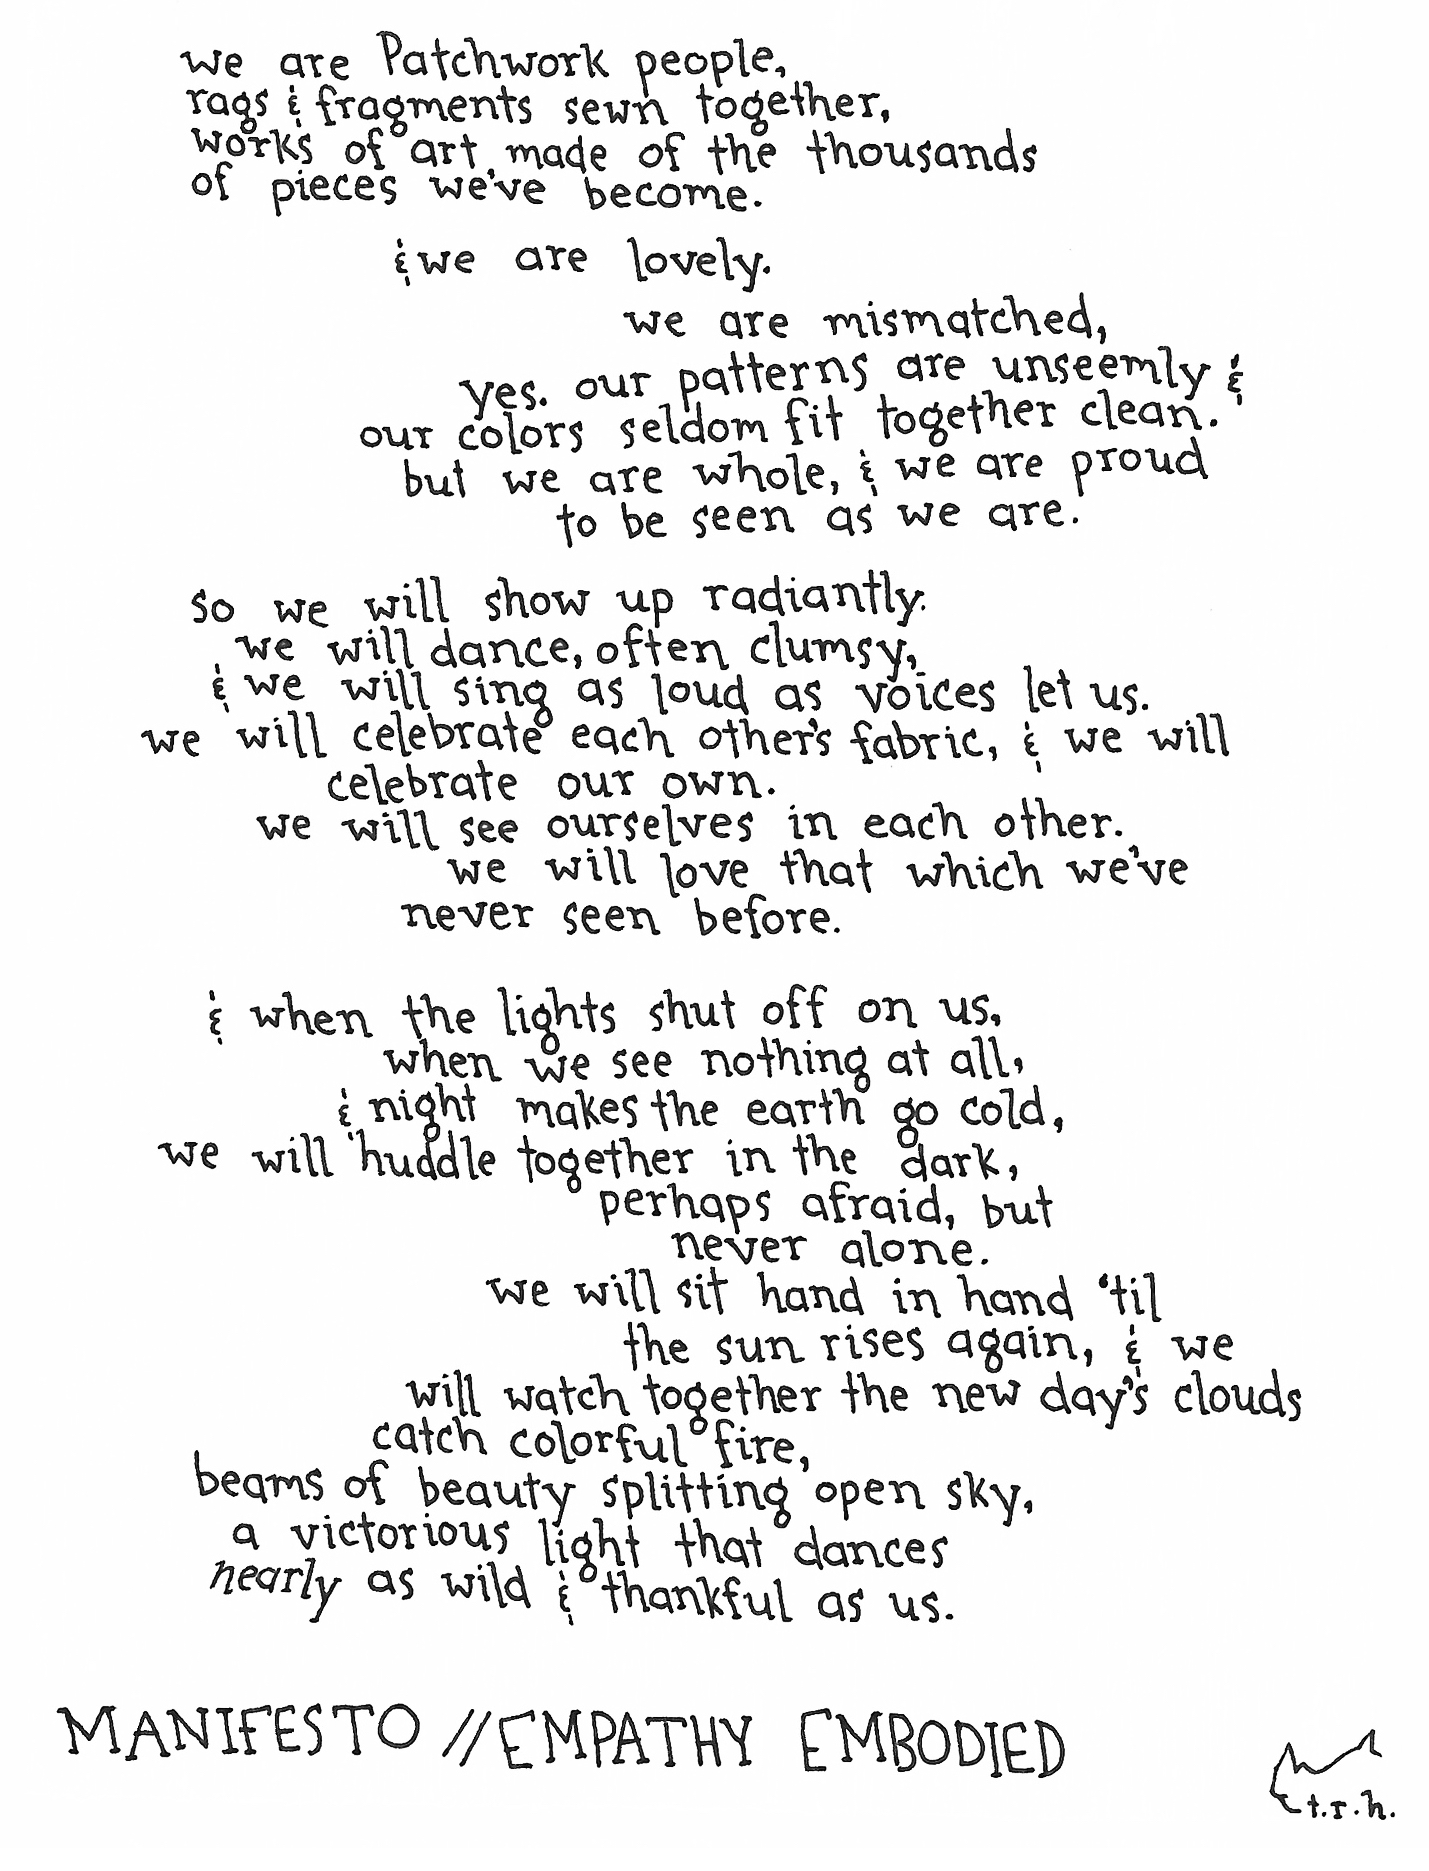 we are Patchwork people,
rags & fragments sewn together,
works of art made of the thousands
of pieces we've become.
& we are lovely.
we are mismatched,
yes. our patterns are unseemly &
our colors seldom fit together clean.
but we are whole, & we are proud
to be seen as we are.
so we will show up radiantly.
we will dance, often clumsy,
& we will sing as loud as voices let us.
we will celebrate each other's fabric, & we will
celebrate our own.
we will see ourselves in each other.
we will love that which we've
never seen before.
& when the lights shut off on us,
when we see nothing at all,
& night makes the earth go cold,
we will huddle together in the dark,
perhaps afraid, but
never alone.
we will sit hand in hand 'til
the sun rises again, & we
will watch together the new day's clouds
catch colorful fire,
beams of beauty splitting open sky,
a victorious light that dances
nearly as wild & thankful as us.
MANIFESTO // EMPATHY EMBODIED
t.r.h.